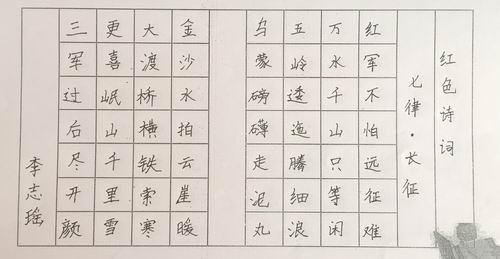 红色诗词
七律·长征
红军不怕远征难
万水千山只等闲
五岭逶迤腾细浪
乌蒙磅礴走泥丸
金沙水拍云崖暖
大渡桥横铁索寒
更喜岷山千里雪
三军过后尽开颜
李志瑶